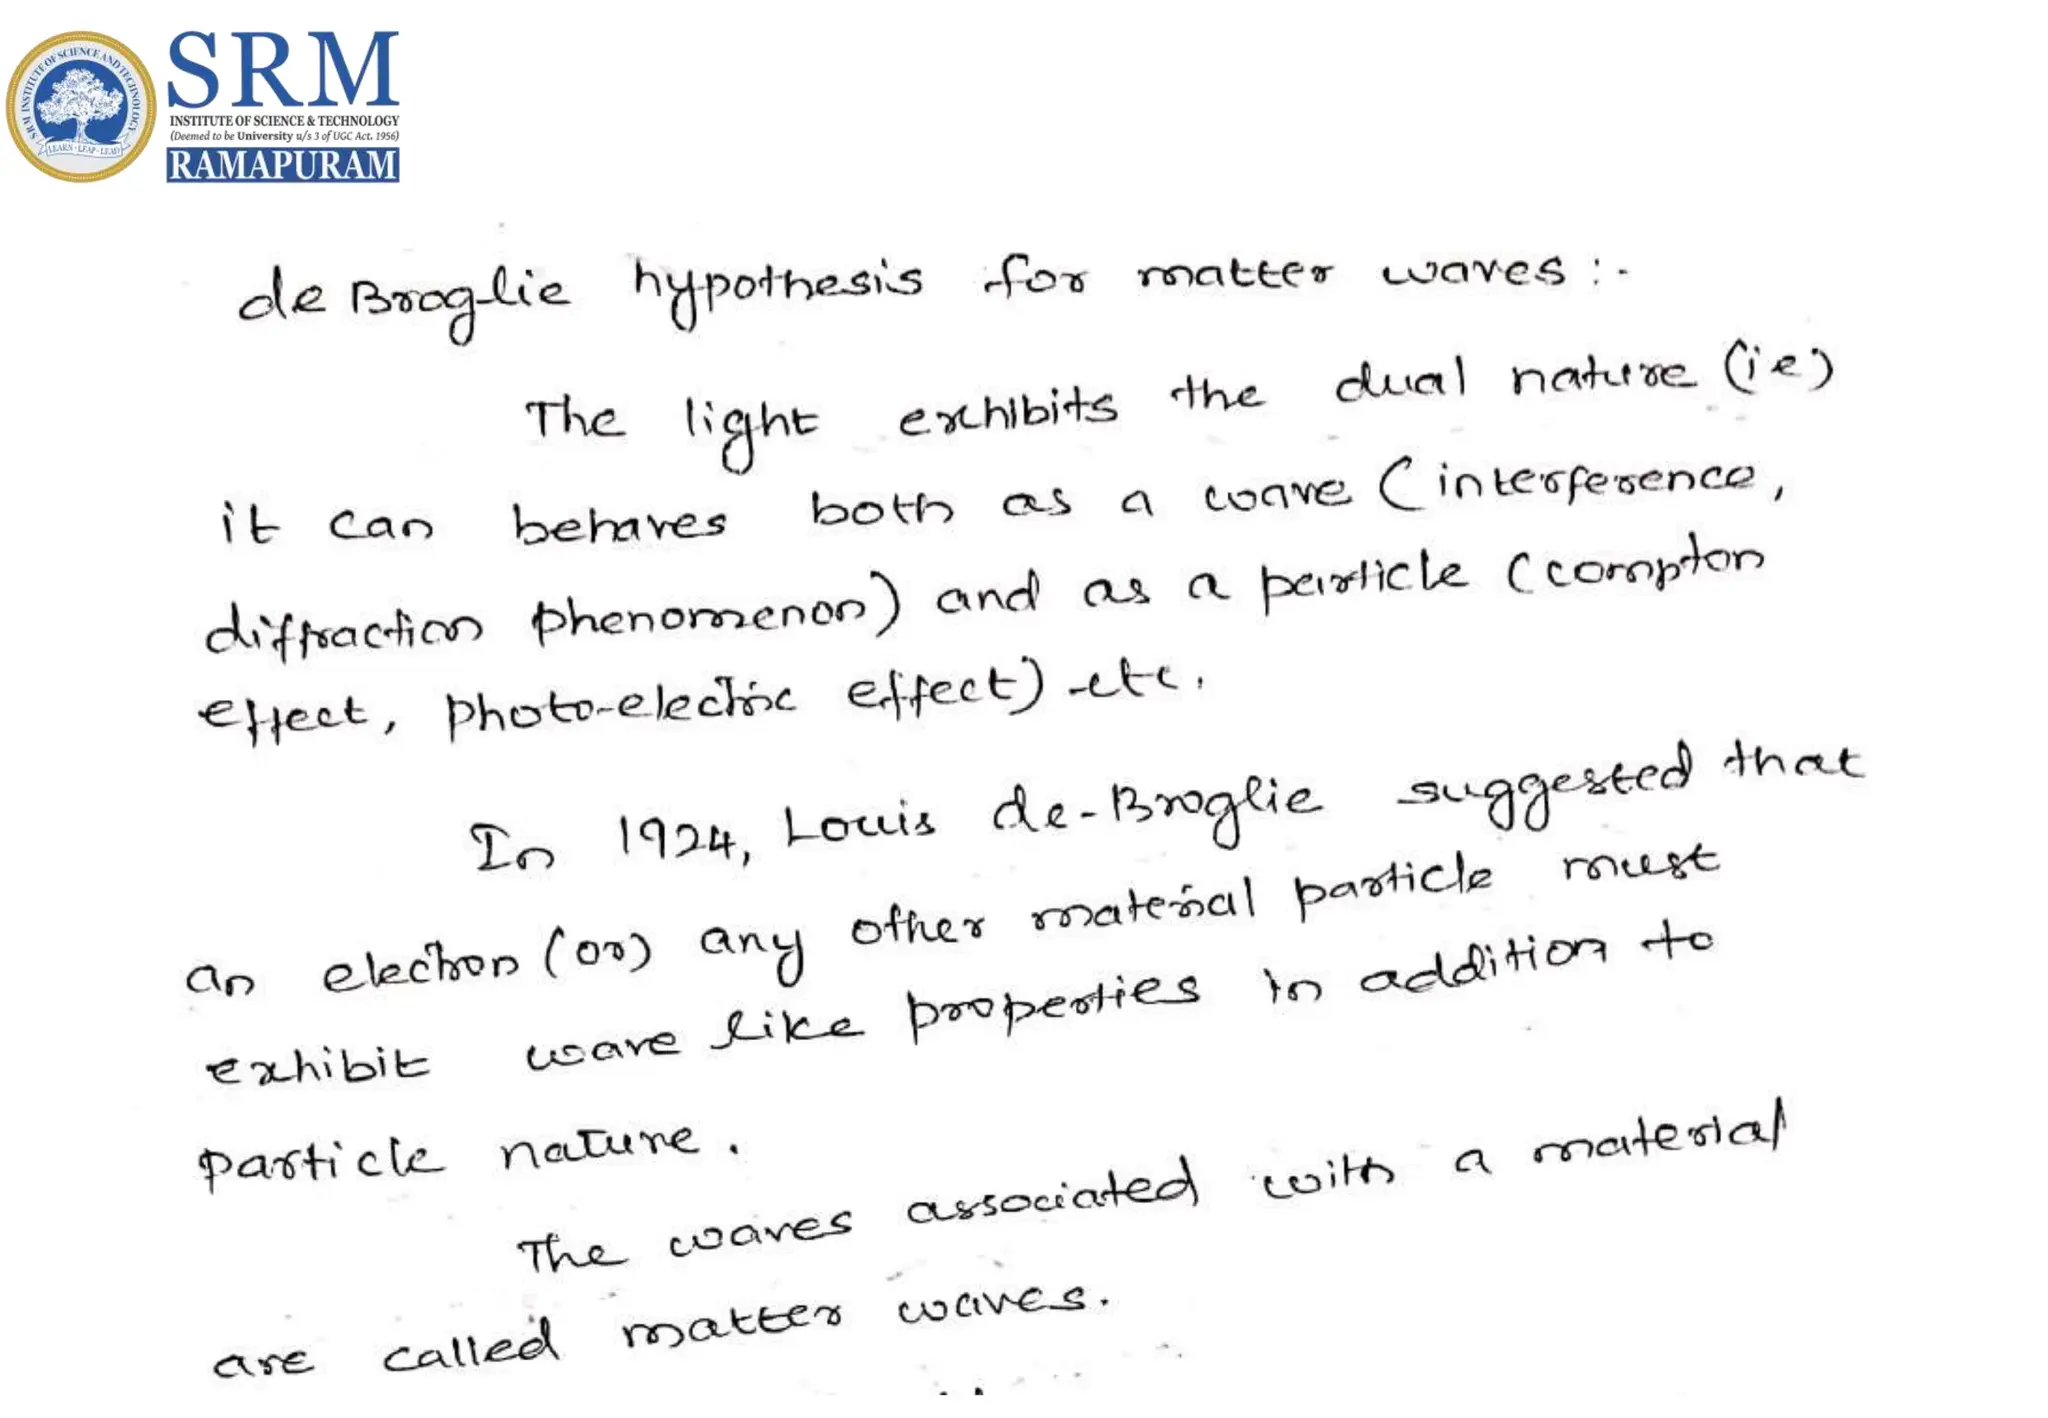 SRM
INSTITUTE OF SCIENCE & TECHNOLOGY
(Deemed to be University u/s 3 of UGC Act, 1956)
RAMAPURAM
SRM INSTITUTE OF SCIENCE AND TECHNOLOGY
LEARN - LEAP - LEAD
de Broglie hypothesis for matter waves :-
The light exhibits the dual nature (ie)
it can behaves both as a wave (interference,
diffraction phenomenon) and as a particle (compton
effect, photo-electric effect) etc.
In 1924, Louis de-Broglie suggested that
an electron (or) any other material particle must
exhibit wave like properties in addition to
particle nature.
The waves associated with a material
are called matter waves.